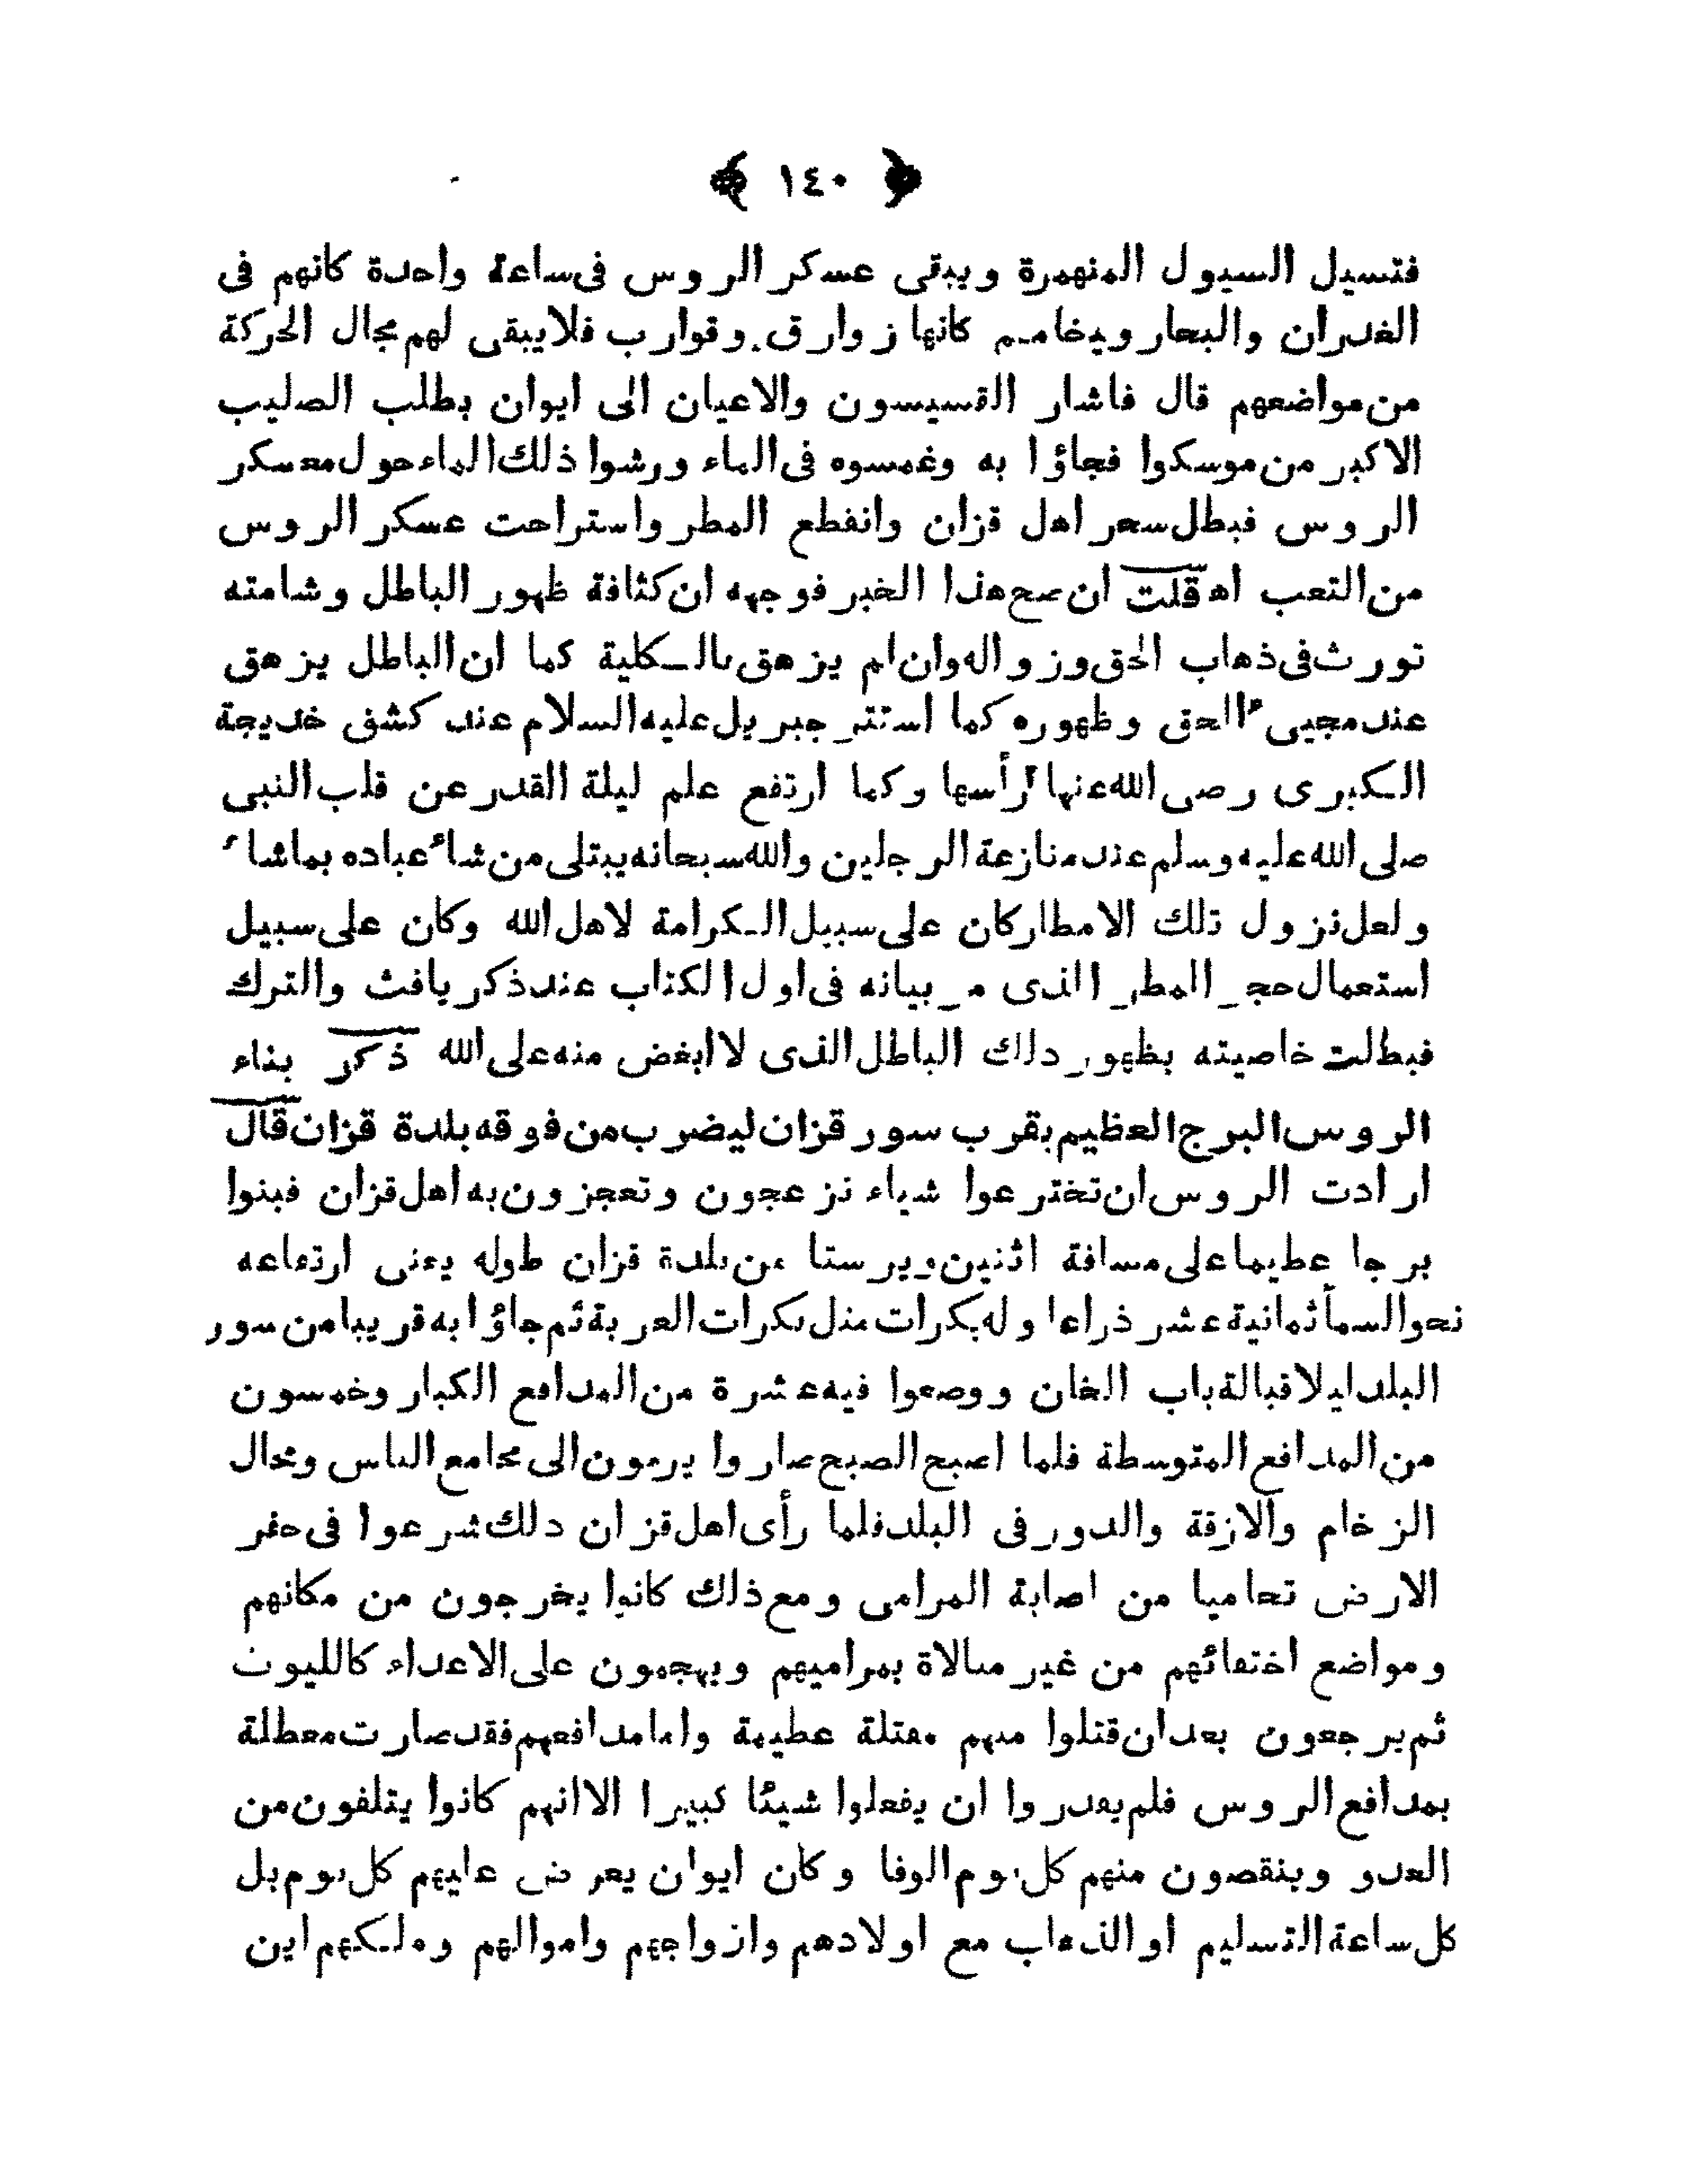 ﴿ ١٤٠ ﴾
فتسيل السيول المنهمرة ويبقى عسكر الروس فى ساعة واحدة كانهم فى
الغدران والبحار وبخامهم كانها زوارق وقوارب فلا يبقى لهم مجال الحركة
من مواضعهم قال فاشار القسيسون والاعيان الى ايوان بطلب الصليب
الاكبر من موسكوا فجاؤا به وغمسوه فى الماء ورشوا ذلك الماء حول معسكر
الروس فبطل سحر اهل قزان وانقطع المطر واستراحت عسكر الروس
من التعب اه قلت ان صح هذا الخبر فوجهه ان كثافة ظهور الباطل وشامته
تورث فى ذهاب الحق وزواله وان لم يزهق بالكلية كما ان الباطل يزهق
عند مجيىء الحق وظهوره كما استتر جبريل عليه السلام عند كشف خديجة
الكبرى رضى الله عنها رأسها وكما ارتفع علم ليلة القدر عن قلب النبى
صلى الله عليه وسلم عند منازعة الرجلين والله سبحانه يبتلى من شاء عباده بما شاء
ولعل نزول تلك الامطار كان على سبيل الكرامة لاهل الله وكان على سبيل
استعمال حجر المطر الذى مر بيانه فى اول الكتاب عند ذكر يافث والترك
فبطلت خاصيته بظهور ذلك الباطل الذى لا ابغض منه على الله ذكر بناء
الروس البرج العظيم بقرب سور قزان ليضرب من فوقه بلدة قزان قال
ارادت الروس ان تخترعوا شياء نزعجون وتعجزون به اهل قزان فبنوا
برجا عظيما على مسافة اثنين ويرستا من بلدة قزان طوله يعنى ارتفاعه
نحو السمأ ثمانية عشر ذراعا وله بكرات مثل بكرات العربة ثم جاؤا به قريبا من سور
البلد ليلا قبالة باب الخان ووضعوا فيه عشرة من المدافع الكبار وخمسون
من المدافع المتوسطة فلما اصبح الصبح صاروا يرمون الى مجامع الناس ومحال
الزخام والازقة والدور فى البلد فلما رأى اهل قزان ذلك شرعوا فى حفر
الارض تحاميا من اصابة المرامى ومع ذلك كانوا يخرجون من مكانهم
ومواضع اختفائهم من غير مبالاة بمراميهم ويهجمون على الاعداء كالليوث
ثم يرجعون بعد ان قتلوا منهم مقتلة عظيمة واما مدافعهم فقد صارت معطلة
بمدافع الروس فلم يقدروا ان يفعلوا شيئا كبيرا الا انهم كانوا يتلفون من
العدو وينقصون منهم كل يوم الوفا وكان ايوان يعرض عليهم كل يوم بل
كل ساعة التسليم او الذهاب مع اولادهم وازواجهم واموالهم وملكهم اين